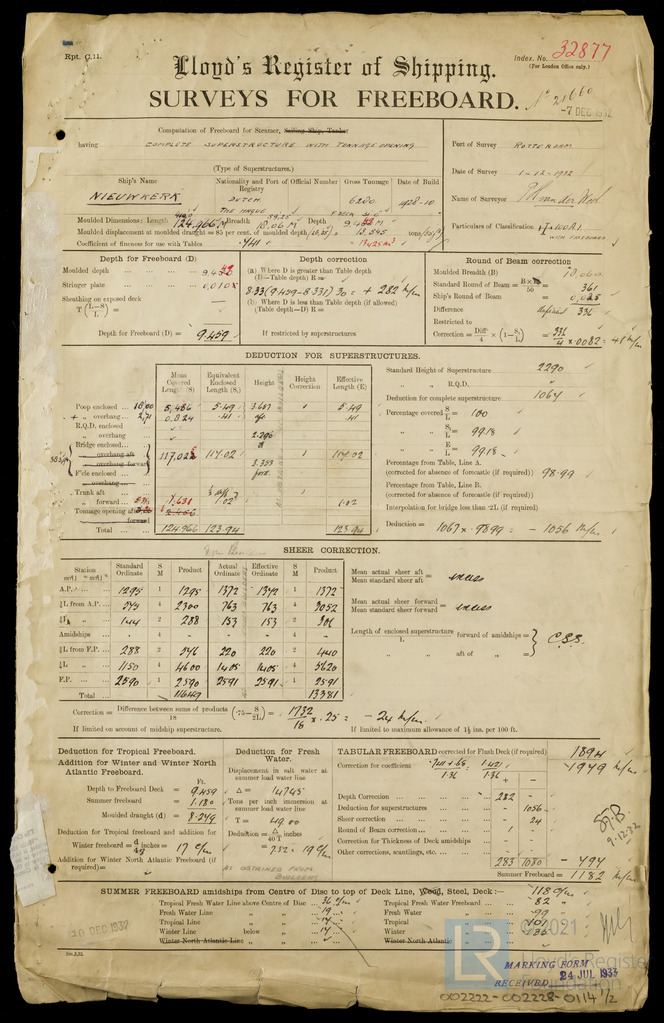 Rpt. C.11.
Lloyd's Register of Shipping.
Index. No. 32877
(For London Office only.)
SURVEYS FOR FREEBOARD.
No 21660
-7 DEC 1932
Computation of Freeboard for Steamer, Sailing Ship, Tanker
having COMPLETE SUPERSTRUCTURE WITH TONNAGE OPENING
(Type of Superstructures.)
Port of Survey ROTTERDAM
Date of Survey 1-12-1932
Name of Surveyor
Particulars of Classification +100A1
WITH FREEBOARD
Ship's Name
Nationality and Port of Registry
Official Number
Gross Tonnage
Date of Build
NIEUWKERK
DUTCH
THE HAGUE
6280
1928-10
Moulded Dimensions: Length 124.966 M Breadth 18.06 M Depth
Moulded displacement at moulded draught = 85 per cent. of moulded depth 13.545 tons
Coefficient of fineness for use with Tables .741
Depth for Freeboard (D)
Moulded depth
Stringer plate
Sheathing on exposed deck
T (L-S / L) =
Depth for Freeboard (D) = 9.459
Depth correction
(a) Where D is greater than Table depth
(D—Table depth) R =
8.33 (9.459-8.331) 30 = + 282 m/m
(b) Where D is less than Table depth (if allowed)
(Table depth—D) R =
If restricted by superstructures
Round of Beam correction
Moulded Breadth (B) 18.060
Standard Round of Beam = B×12/50 = 361
Ship's Round of Beam = 0.025
Difference 336
Restricted to
Correction = Diff/4 × (1-S/L) = 336/4 × .0082 =
DEDUCTION FOR SUPERSTRUCTURES.
Mean Covered Length (S)
Equivalent Enclosed Length (S₁)
Height
Height Correction
Effective Length (E)
Poop enclosed 5.486 5.49 5.49
" overhang 0.824 .41 .41
R.Q.D. enclosed
" overhang
Bridge enclosed 117.02 117.02
" overhang aft
" overhang forward
F'cle enclosed
" overhang
Trunk aft
" forward
Tonnage opening 1.02 1.02
" forward
Total 124.966 123.94 123.94
Standard Height of Superstructure 2290
" " R.Q.D. "
Deduction for complete superstructure 1067
Percentage covered S/L = 100
" S₁/L = 99.18
" E/L = 99.18
Percentage from Table, Line A.
(corrected for absence of forecastle (if required)) 98.99
Percentage from Table, Line B.
(corrected for absence of forecastle (if required))
Interpolation for bridge less than ·2L (if required)
Deduction = 1067 × .9899 = - 1056 m/m
SHEER CORRECTION.
Station
Standard Ordinate
S M
Product
Actual Ordinate
Effective Ordinate
S M
Product
A.P. 1295 1 1295 1372 1372 1 1372
⅙L from A.P. 575 4 2300 763 763 4 3052
⅓L " 144 2 288 153 153 2 306
Amidships - 4 - - - 4 -
⅓L from F.P. 288 2 576 220 220 2 440
⅙L " 1150 4 4600 1405 1405 4 5620
F.P. 2590 1 2590 2591 2591 1 2591
Total 11649 13381
Mean actual sheer aft
Mean standard sheer aft = excess
Mean actual sheer forward
Mean standard sheer forward = excess
Length of enclosed superstructure forward of amidships =
L
" aft of " =
C.S.S.
Correction = Difference between sums of products / 18 (·75 - S/2L) = 1732/18 × .25 = - 24 m/m
If limited on account of midship superstructure.
If limited to maximum allowance of 1½ ins. per 100 ft.
Deduction for Tropical Freeboard.
Addition for Winter and Winter North Atlantic Freeboard.
Ft.
Depth to Freeboard Deck = 9.459
Summer freeboard = 1.180
Moulded draught (d) = 8.279
Deduction for Tropical freeboard and addition for
Winter freeboard = d/48 inches = 17 c/m
Addition for Winter North Atlantic Freeboard (if required)=
Deduction for Fresh Water.
Displacement in salt water at summer load water line
Δ = 14745
Tons per inch immersion at summer load water line
T = 49.00
Deduction = Δ/40T inches
= 7.52 = 19 c/m
AS OBTAINED FROM BUILDERS
TABULAR FREEBOARD corrected for Flush Deck (if required) 1894
Correction for coefficient .741+.68 / 1.36 = 1.421 / 1.36 1979 m/m
+ -
Depth Correction 282
Deduction for superstructures 1056
Sheer correction 24
Round of Beam correction 1
Correction for Thickness of Deck amidships - -
Other corrections, scantlings, etc. - -
283 1080 - 797
Summer Freeboard = 1182 m/m
9-12-32
SUMMER FREEBOARD amidships from Centre of Disc to top of Deck Line, Wood, Steel, Deck :— 118 c/m
Tropical Fresh Water Line above Centre of Disc 36 c/m
Fresh Water Line " " 19
Tropical Line " " 17
Winter Line below " " 17
Winter North Atlantic Line " "
Tropical Fresh Water Freeboard 82
Fresh Water " 99
Tropical " 101
Winter " 135
Winter North Atlantic "
10 DEC 1932
©2021
LR
Lloyd's Register
Foundation
MARKING FORM
RECEIVED 24 JUL 1933
002222-002228-0114 1/2